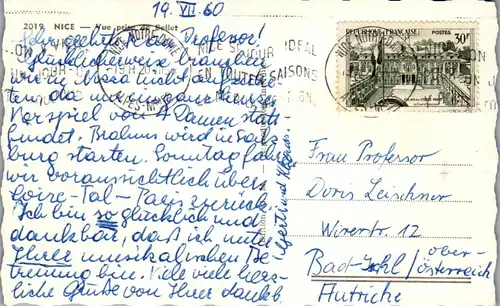 19. VII. 60
2019. NICE — Vue prise de Bellet
Sehr geehrte Frau Professor!
Glücklicherweise brauchen
wir in Nizza nicht arbei-
ten, da nur ein ganz kurzes
Vorspiel von 4 Damen statt-
findet. Brahms wird in Salz-
burg starten. Sonntag fahren
wir voraussichtlich über
Loire-Tal-Paris zurück.
Ich bin so glücklich und
dankbar, daß ich unter
Ihrer musikalischen Be-
treuung bin. Viele viele herz-
liche Grüße von Ihrer dankb.
Gerthard
NICE SEJOUR IDEAL
EN TOUTES SAISONS
REPUBLIQUE FRANÇAISE
POSTES
30F
Frau Professor
Doris Leischner
Wirerstr. 12
Bad-Ischl / ober-
österreich
Autriche